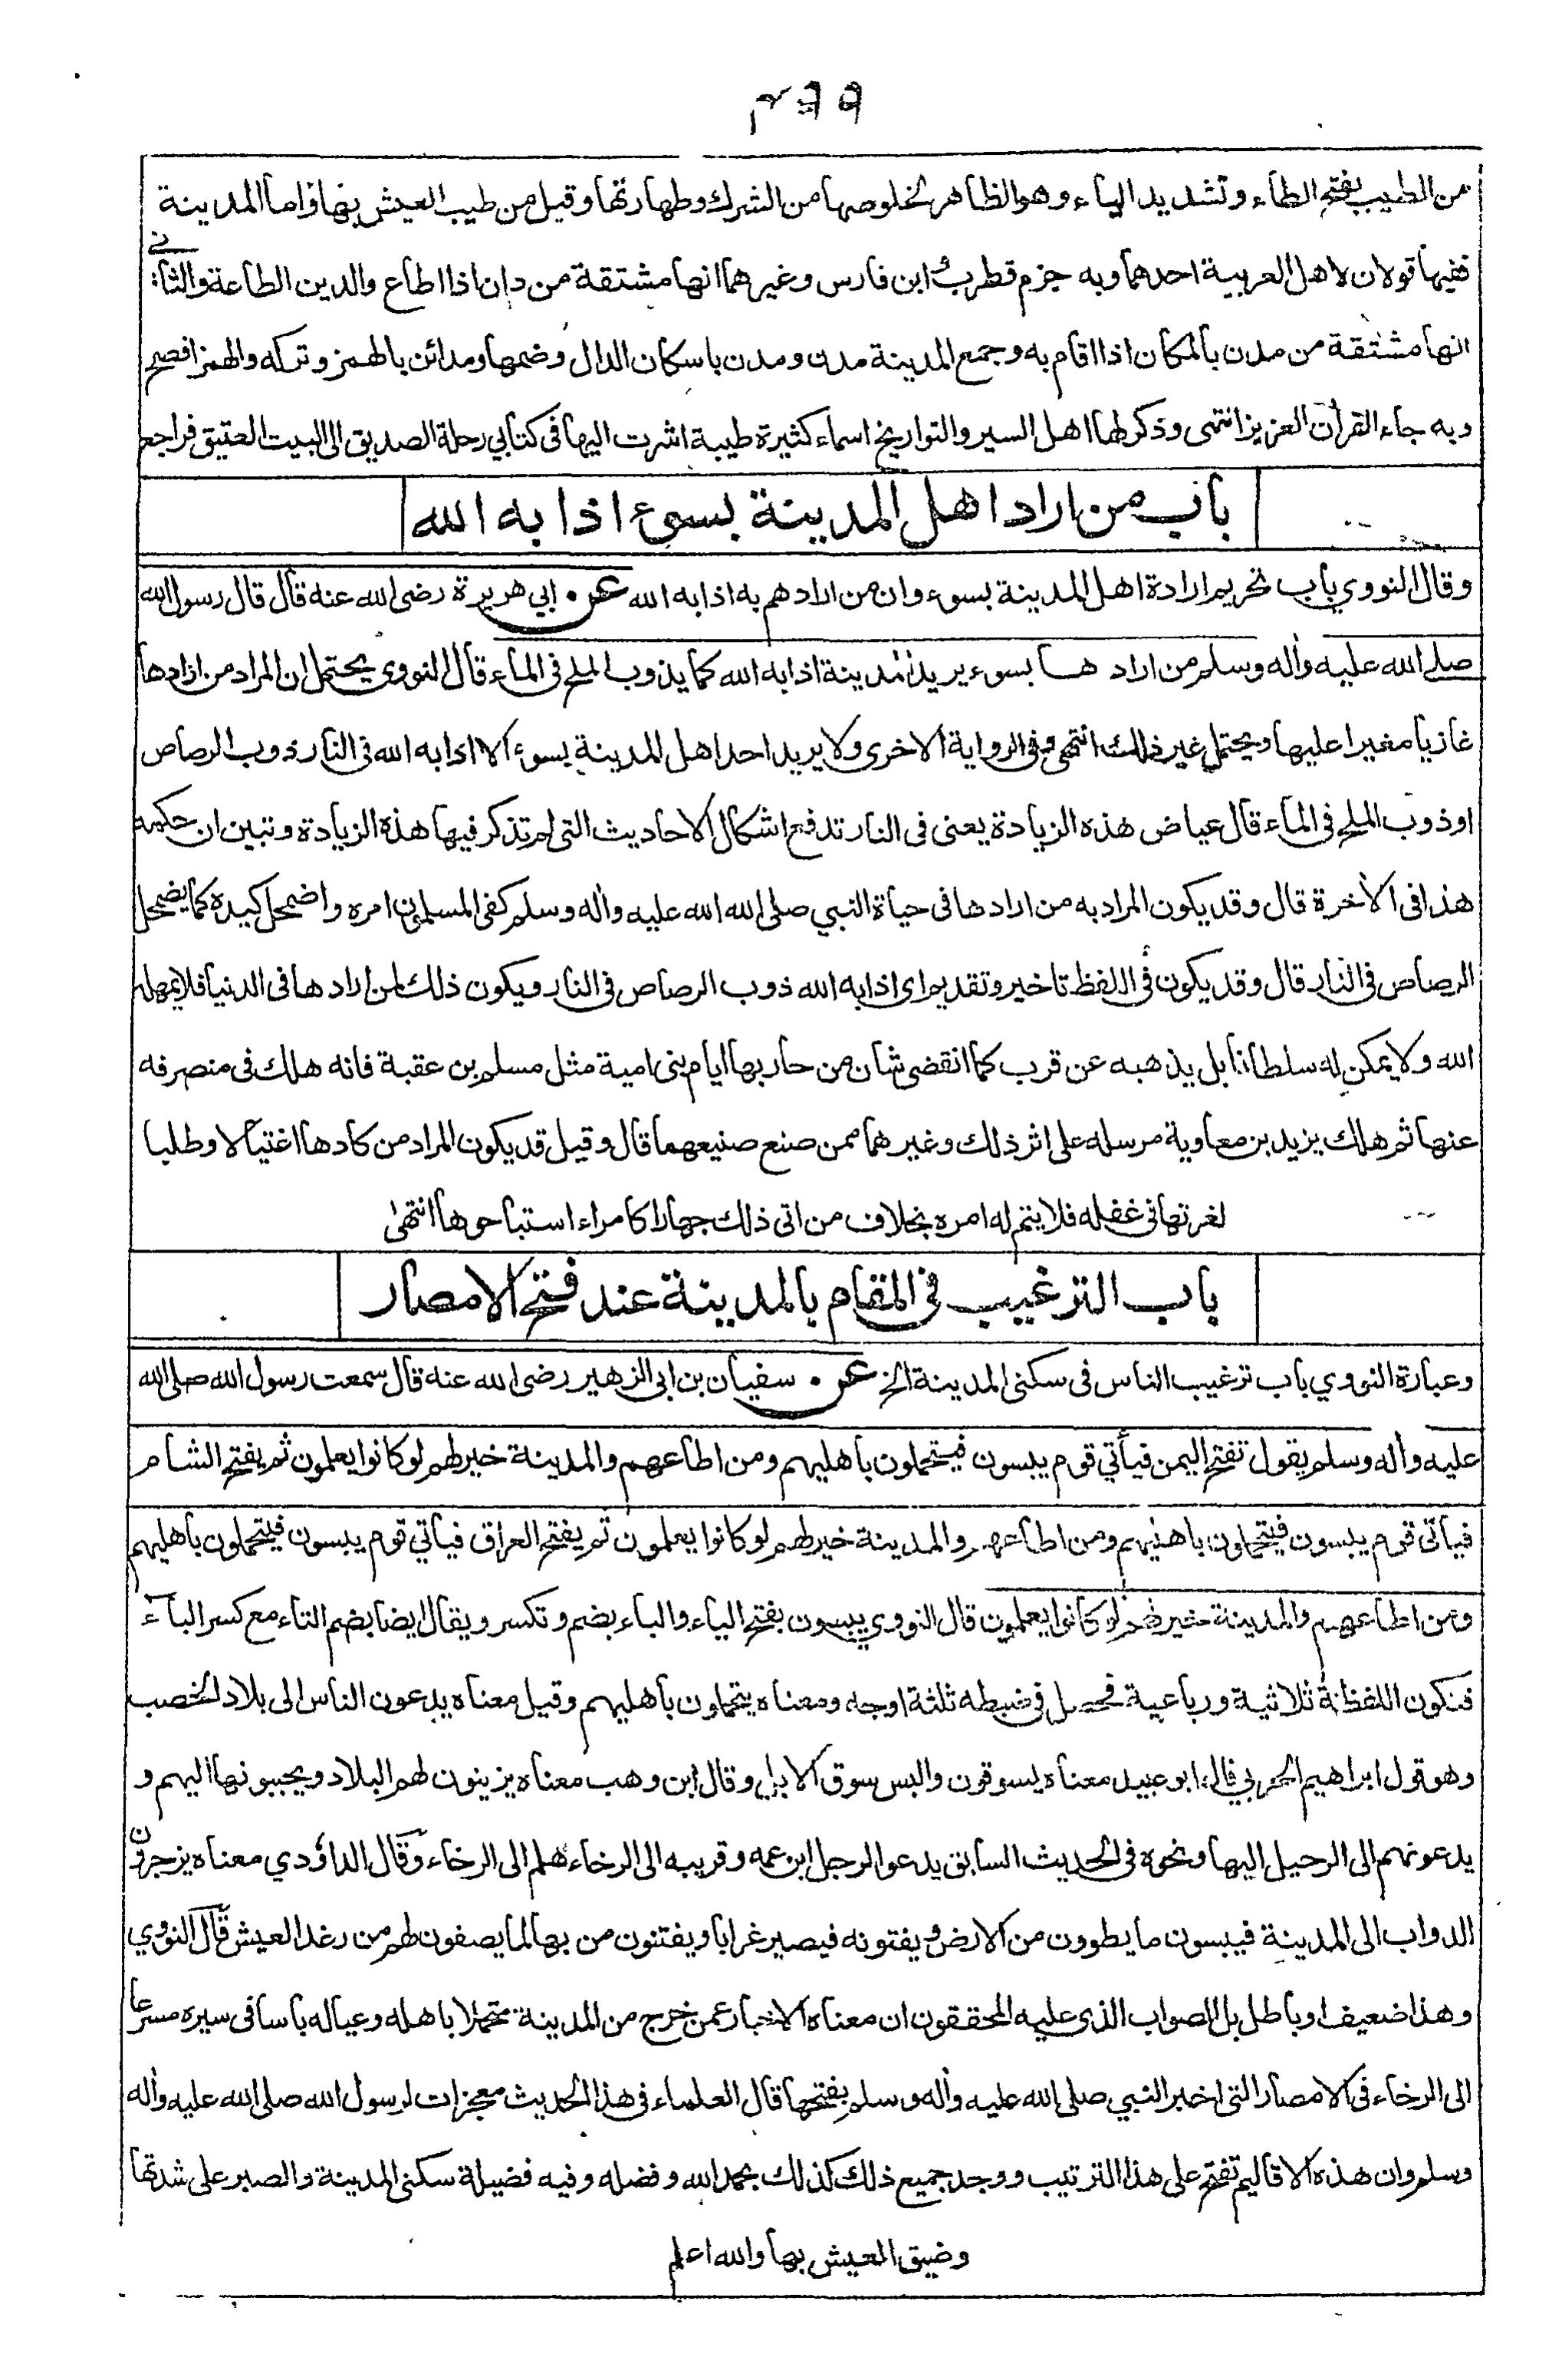 من الطيب بفتح الطاء وتشديد الياء وهو الظاهر لخلوصها من الشرك وطهارتها وقيل من طيب العيش بها واما المدينة
ففيها قولان لاهل العربية احدهما وبه جزم قطرب وابن فارس وغيرهما انها مشتقة من دان اذا اطاع والدين الطاعة والثاني
انها مشتقة من مدن بالمكان اذا اقام به وجمع المدينة مدن ومدن باسكان الدال وضمها ومدائن بالهمز وتركه والهمز افصح
وبه جاء القرآن العزيز انتهى وذكر لها اهل السير والتواريخ اسماء كثيرة طيبة اشرت اليها في كتابي رحلة الصديق الى البيت العتيق فراجع
باب من اراد اهل المدينة بسوء اذابه الله
وقال النووي باب تحريم ارادة اهل المدينة بسوء وان من ارادهم به اذابه الله عن ابي هريرة رضي الله عنه قال قال رسول الله
صلى الله عليه وأله وسلم من ارادها بسوء يريد المدينة اذابه الله كما يذوب الملح في الماء قال النووي يحتمل ان المراد من ارادها
غازيا مغيرا عليها ويحتمل غير ذلك انتهى وفي الرواية الاخرى ولا يريد احد اهل المدينة بسوء الا اذابه الله في النار ذوب الرصاص
او ذوب الملح في الماء قال عياض هذه الزيادة يعنى في النار تدفع اشكال الاحاديث التي لم تذكر فيها هذه الزيادة وتبين ان حكمه
هذا في الآخرة قال وقد يكون المراد به من ارادها في حياة النبي صلى الله الله عليه وأله وسلم كفي المسلمون امره واضمحل كيده كما يضمحل
الرصاص في النار قال وقد يكون في اللفظ تاخير وتقديم اى اذابه الله ذوب الرصاص في النار ويكون ذلك لمن ارادها في الدنيا فلا يمهله
الله ولا يمكن له سلطانا بل يذهبه عن قرب كما انقضى شان من حاربها ايام بنى امية مثل مسلم بن عقبة فانه هلك في منصرفه
عنها ثم هلك يزيد بن معاوية مرسله على اثر ذلك وغيرهما ممن صنع صنيعهما قال وقيل قد يكون المراد من كادها اغتيالا وطلبا
لغرتها في غفلة فلا يتم له امره بخلاف من اتى ذلك جهارا كامراء استباحوها انتهى
باب الترغيب في المقام بالمدينة عند فتح الامصار
وعبارة النووي باب ترغيب الناس في سكنى المدينة الخ عن سفيان بن ابي الزهير رضي الله عنه قال سمعت رسول الله صلى الله
عليه وأله وسلم يقول تفتح اليمن فيأتي قوم يبسون فيتحملون بأهليهم ومن اطاعهم والمدينة خير لهم لو كانوا يعلمون ثم يفتح الشام
فيأتي قوم يبسون فيتحملون باهليهم ومن اطاعهم والمدينة خير لهم لو كانوا يعلمون ثم يفتح العراق فيأتي قوم يبسون فيتحملون بأهليهم
ومن اطاعهم والمدينة خير لهم لو كانوا يعلمون قال النووي يبسون بفتح الياء والباء بضم وتكسر ويقال ايضا بضم التاء مع كسر الباء
فتكون اللفظة ثلاثية ورباعية فحصل في ضبطه ثلثة اوجه ومعناه يتحملون بأهليهم وقيل معناه يدعون الناس الى بلاد الخصب
وهو قول ابراهيم الحربي قال ابو عبيد معناه يسوقون والبس سوق الابل وقال ابن وهب معناه يزينون لهم البلاد ويحببونها اليهم و
يدعونهم الى الرحيل اليها ونحوه في الحديث السابق يدعو الرجل ابن عمه وقريبه الى الرخاء هلم الى الرخاء وقال الداؤدي معناه يزجرون
الدواب الى المدينة فيبسون ما يطوون من الارض ويفتونه فيصير غرابا ويفتنون من بها لما يصفون لهم من رغد العيش قال النووي
وهذا ضعيف او باطل بل الصواب الذي عليه المحققون ان معناه الاخبار عمن خرج من المدينة متحملا باهله وعياله باسا في سيره مسرعا
الى الرخاء في الامصار التي اخبر النبي صلى الله عليه وأله وسلم بفتحها قال العلماء في هذا الحديث معجزات لرسول الله صلى الله عليه وأله
وسلم وان هذه الاقاليم تفتح على هذا الترتيب ووجد جميع ذلك كذلك بحمد الله وفضله وفيه فضيلة سكنى المدينة والصبر على شدتها
وضيق العيش بها والله اعلم